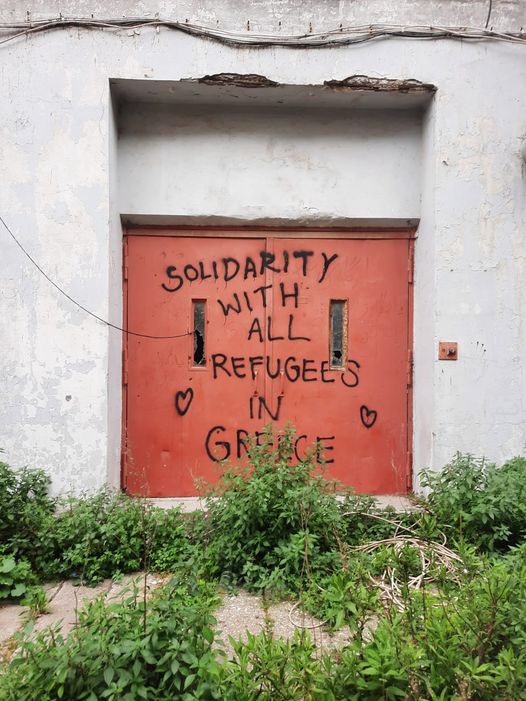 SOLIDARITY
WITH
ALL
REFUGEES
IN
GREECE